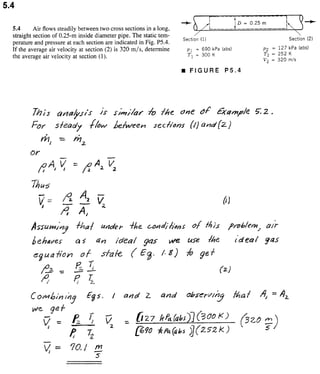 5.4
5.4 Air flows steadily between two cross sections in a long,
straight section of 0.25-m inside diameter pipe. The static tem-
perature and pressure at each section are indicated in Fig. P5.4.
If the average air velocity at section (2) is 320 m/s, determine
the average air velocity at section (1).
D = 0.25 m
Section (1)
Section (2)
p₁ = 690 kPa (abs)
T₁ = 300 K
p₂ = 127 kPa (abs)
T₂ = 252 K
V₂ = 320 m/s
■ FIGURE P5.4
This analysis is similar to the one of Example 5.2.
For steady flow between sections (1) and (2)
ṁ₁ = ṁ₂
or
ρ₁ A₁ V̄₁ = ρ₂ A₂ V̄₂
Thus
V̄₁ = ρ₂/ρ₁ A₂/A₁ V̄₂ (1)
Assuming that under the conditions of this problem, air
behaves as an ideal gas we use the ideal gas
equation of state (Eq. 1.8) to get
ρ₂/ρ₁ = P₂/P₁ T₁/T₂ (2)
Combining Eqs. 1 and 2 and observing that A₁ = A₂
we get
V̄₁ = P₂/P₁ T₁/T₂ V̄₂ = [127 kPa(abs)](300 K)/[690 kPa(abs)](252 K) (320 m/s)
V̄₁ = 70.1 m/s